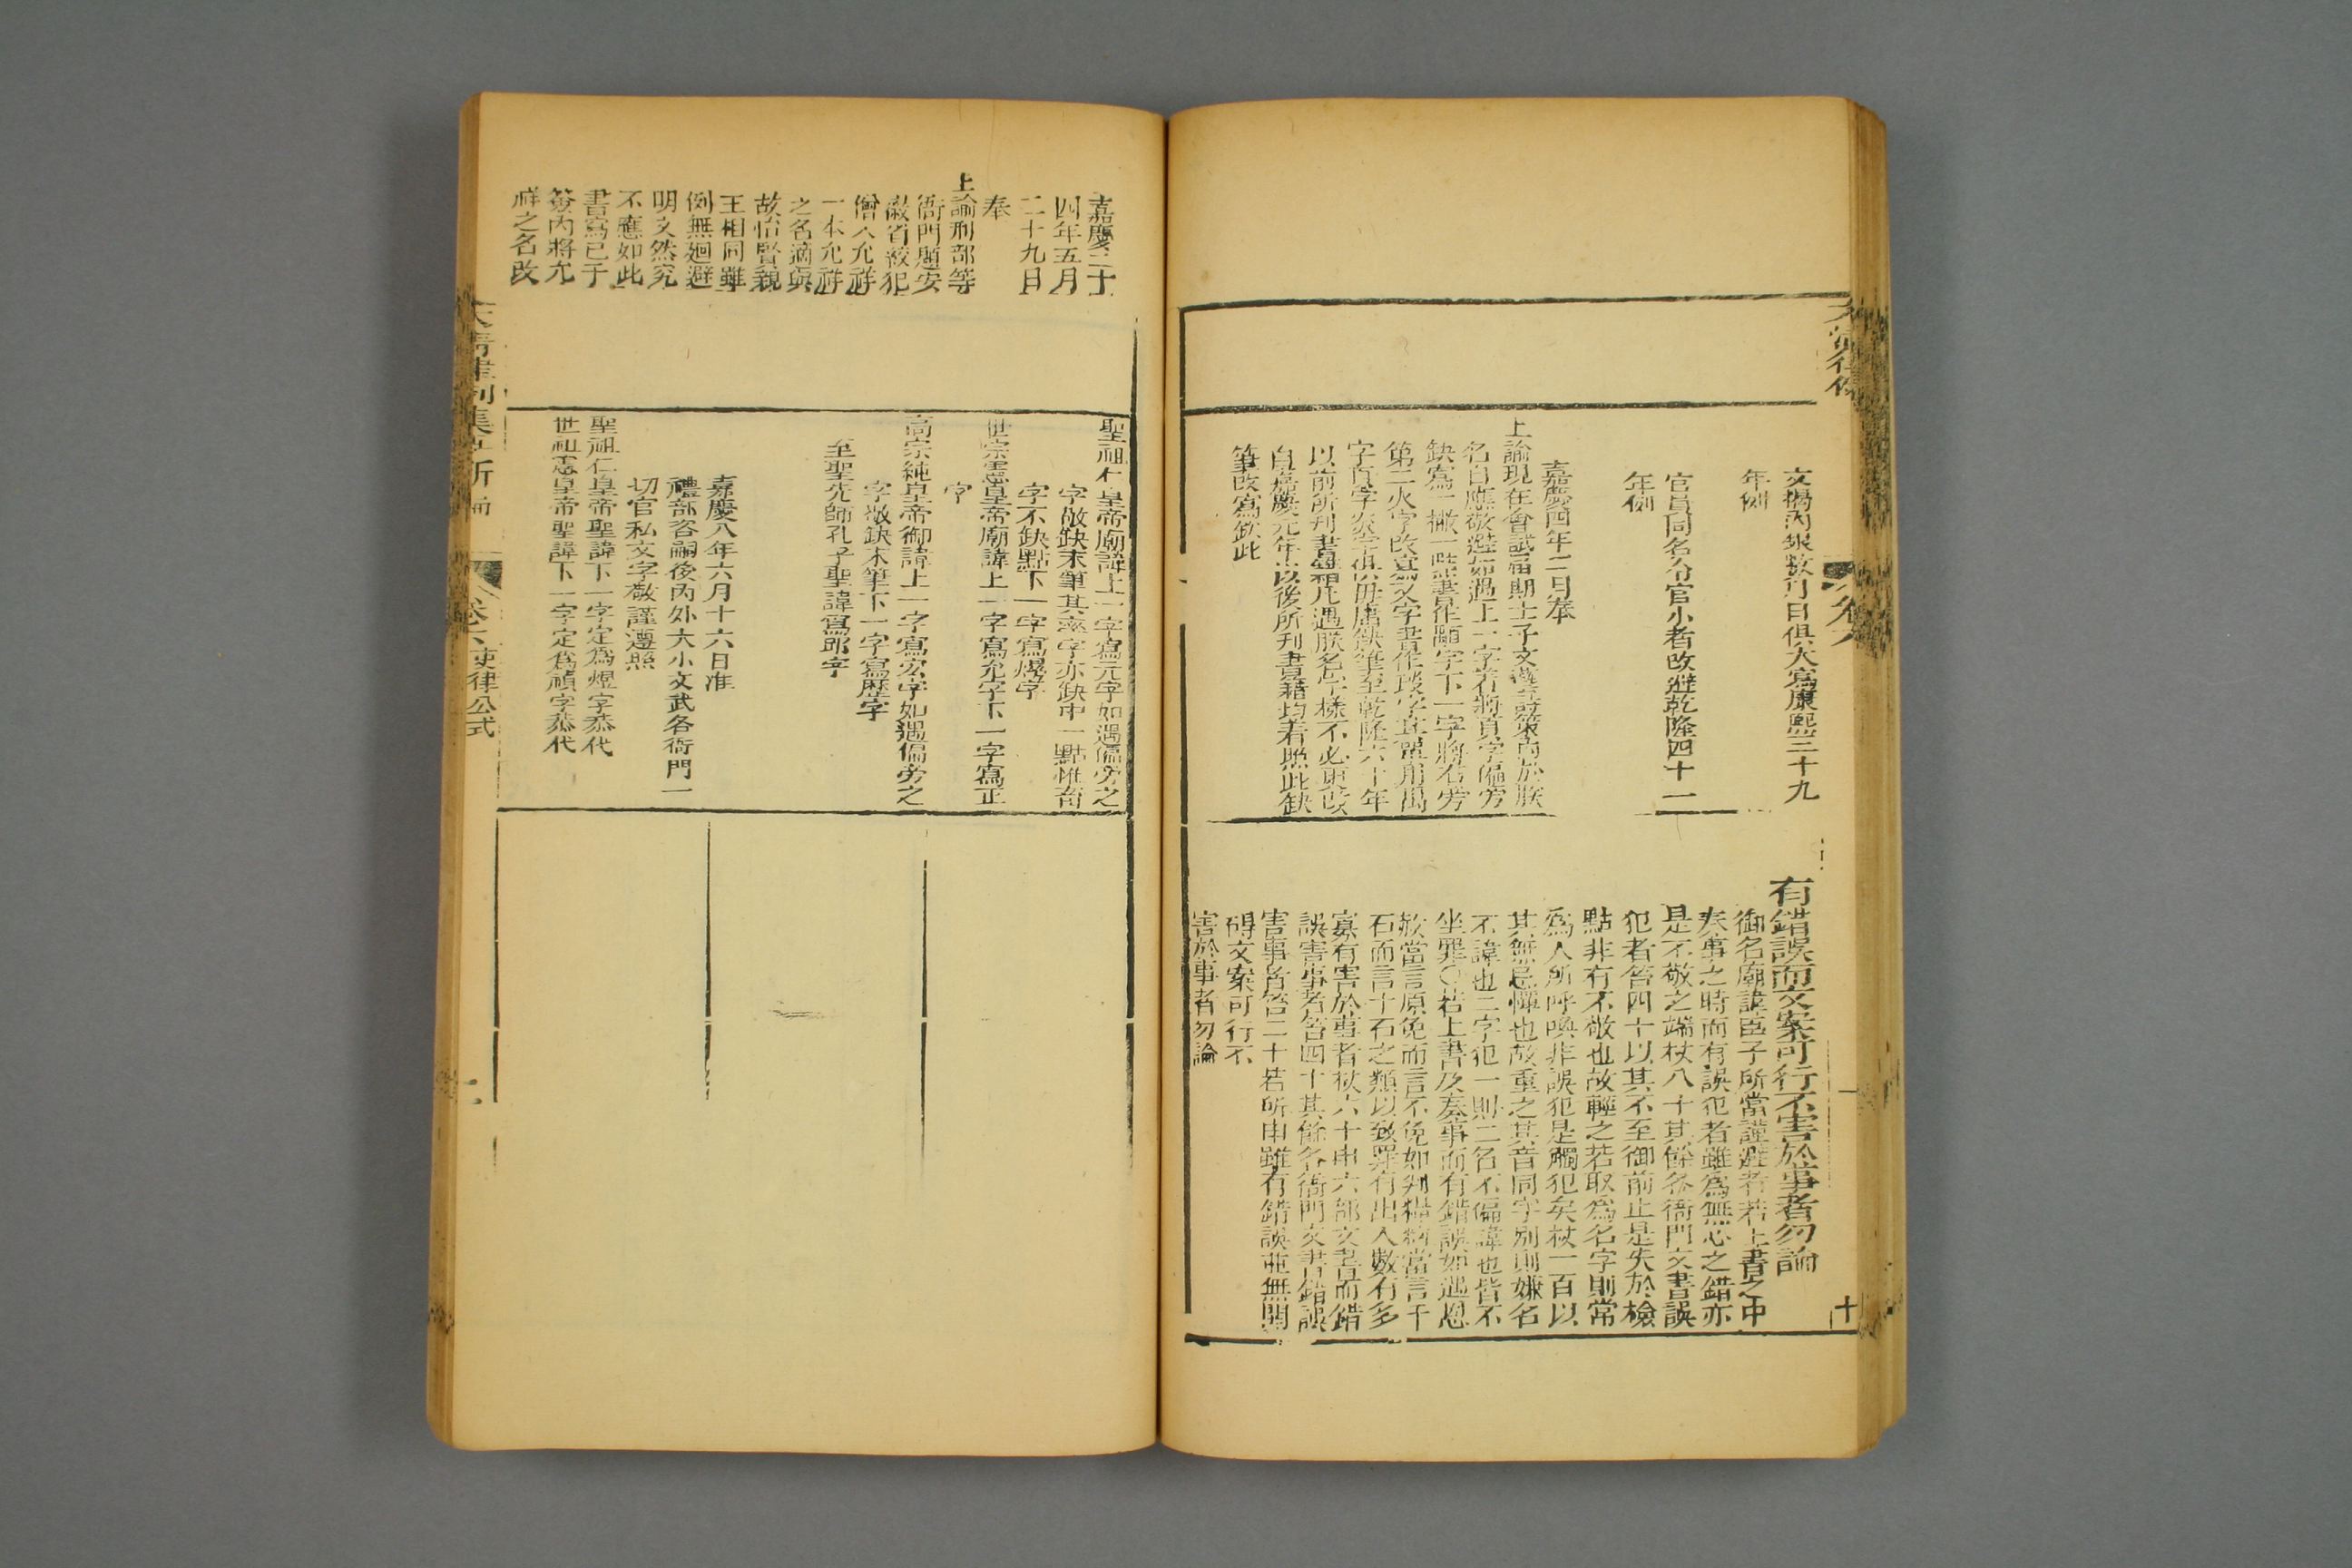 文稿內銀數月日俱大寫康熙三十九
年例
官員同名分官小者改避乾隆四十一
年例
嘉慶四年二月奉
上諭現在會試屆期士子文藝詩策內於朕
名自應敬避如遇上一字若將頁字偏旁
缺寫一撇一點書作顒字下一字將右旁
第二火字改寫又字書作琰字其單用禺
字頁字炎字俱毋庸缺筆至乾隆六十年
以前所刊書籍凡遇朕名字樣不必更改
自嘉慶元年以後所刊書籍均着照此缺
筆改寫欽此
有錯誤而文案可行不害於事者勿論
御名廟諱臣子所當謹避者若上書之中
奏事之時而有誤犯者雖為無心之錯亦
是不敬之端杖八十其餘各衙門文書誤
犯者笞四十以其不至御前止是失於檢
點非有不敬也故輕之若取為名字則常
為人所呼喚非誤犯是觸犯矣杖一百以
其無忌憚也故重之其音同字別則嫌名
不諱也二字犯一則二名不偏諱也皆不
坐罪○若上書及奏事而有錯誤如遇恩
赦當言原免而言不免如糾糧當言千
石而言十石之類以致罪有出入數有多
寡有害於事者杖六十申六部文書而錯
誤害事者笞四十其餘各衙門文書錯誤
害事者笞二十若所申雖有錯誤並無關
碍文案可行不
害於事者勿論
大清律例
卷六
十
嘉慶二十
四年五月
二十九日
奉
上諭刑部等
衙門題安
徽省絞犯
僧人允祥
一本允祥
之名適與
故怡賢親
王相同雖
例無廻避
明文然究
不應如此
書寫已于
簽內將允
祥之名改
聖祖仁皇帝廟諱上一字寫元字如遇偏旁之
字敬缺末筆其率字亦缺中一點惟畜
字不缺點下一字寫爗字
世宗憲皇帝廟諱上一字寫允字下一字寫正
字
高宗純皇帝御諱上一字寫宏字如遇偏旁之
字敬缺末筆下一字寫歷字
至聖先師孔子聖諱寫邱字
嘉慶八年六月十六日准
禮部咨嗣後內外大小文武各衙門一
切官私文字敬謹遵照
聖祖仁皇帝聖諱下一字定為煜字恭代
世祖憲皇帝聖諱下一字定為禎字恭代
大清律例集註所
卷六吏律公式